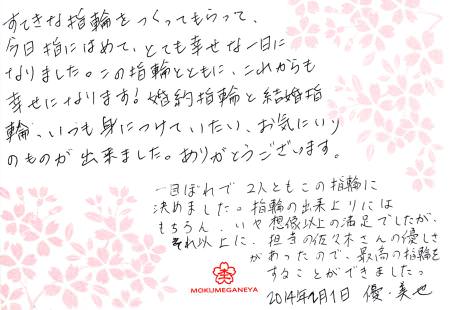 すてきな指輪をつくってもらって、
今日指にはめて、とても幸せな一日に
なりました。この指輪とともに、これからも
幸せになります!婚約指輪と結婚指
輪、いつも身につけていたい、お気にいり
のものが出来ました。ありがとうございます。
一目ぼれで2人ともこの指輪に
決めました。指輪の出来上りには
もちろん、いや想像以上の満足でしたが、
それ以上に、担当の佐久木さんの優しさ
があったので、最高の指輪を
することができましたっ
MOKUMEGANEYA
2014年 月1日 優・美也